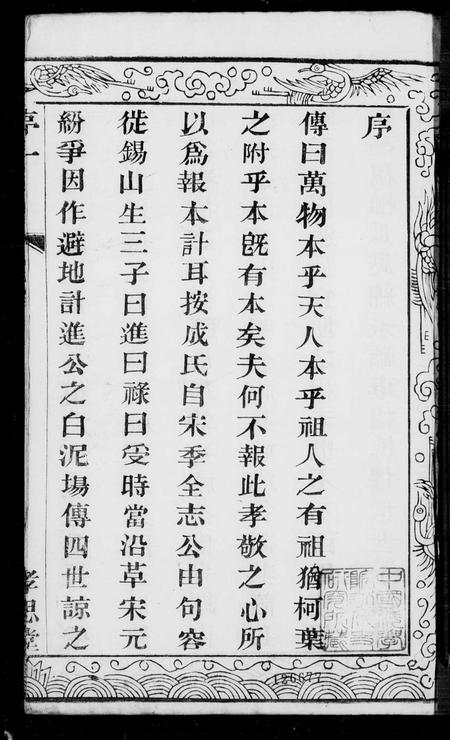 序
傳曰萬物本乎天人本乎祖人之有祖猶柯葉
之附乎本旣有本矣夫何不報此孝敬之心所
以爲報本計耳按成氏自宋季全志公由句容
徙錫山生三子曰進曰祿曰受時當沿草宋元
紛爭因作避地計進公之白泥場傳四世諒之
序一
孝思堂
126677